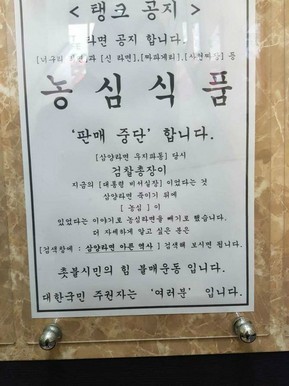 < 탱크 공지 >
라면 공지 합니다.
[너구리 라면과 [신 라면], [짜파게티], [사천짜장] 등
농심식품
‘판매 중단’ 합니다.
[삼양라면 우지파동] 당시
검찰총장이
지금의 [대통령 비서실장] 이었다는 것
삼양라면 죽이기 뒤에
[ 농심 ] 이
있었다는 이야기로 농심라면을 빼기로 했습니다.
더 자세하게 알고 싶은 분은
[검색창에 : 삼양라면 아픈 역사 ] 검색해 보시면 됩니다.
촛불시민의 힘 불매운동 입니다.
대한국민 주권자는 ‘여러분’ 입니다.